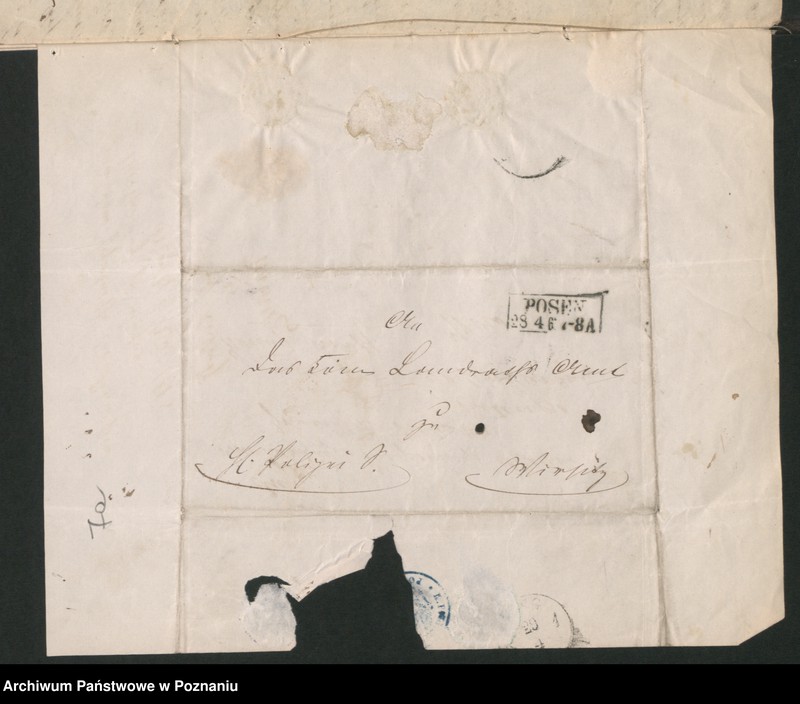 POSEN
28 4 7-8A
An
Das König Landraths Amt
zu
H. Polizei S.
Wirsitz
7a.
20 1
Archiwum Państwowe w Poznaniu